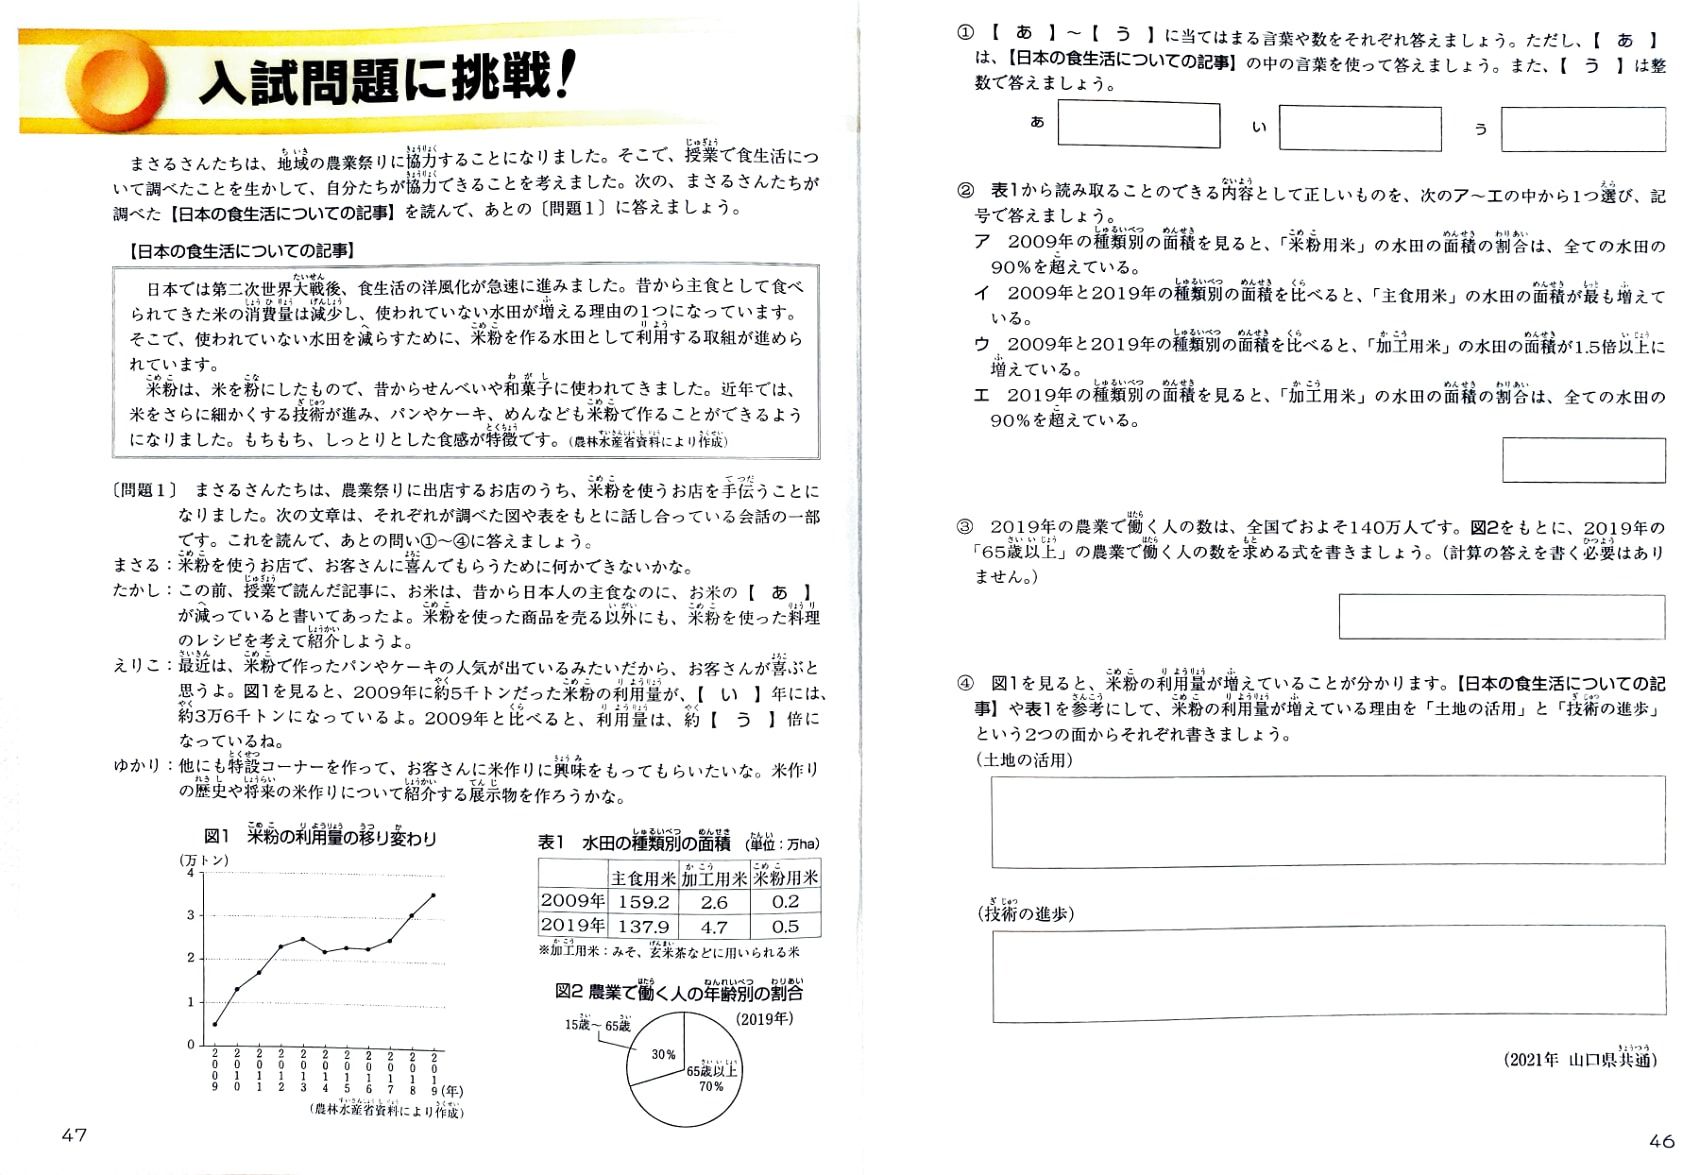 入試問題に挑戦!
まさるさんたちは、地域の農業祭りに協力することになりました。そこで、授業で食生活につ
いて調べたことを生かして、自分たちが協力できることを考えました。次の、まさるさんたちが
調べた【日本の食生活についての記事】を読んで、あとの〔問題1〕に答えましょう。
【日本の食生活についての記事】
日本では第二次世界大戦後、食生活の洋風化が急速に進みました。昔から主食として食べ
られてきた米の消費量は減少し、使われていない水田が増える理由の1つになっています。
そこで、使われていない水田を減らすために、米粉を作る水田として利用する取組が進めら
れています。
米粉は、米を粉にしたもので、昔からせんべいや和菓子に使われてきました。近年では、
米をさらに細かくする技術が進み、パンやケーキ、めんなども米粉で作ることができるよう
になりました。もちもち、しっとりとした食感が特徴です。(農林水産省資料により作成)
〔問題1〕 まさるさんたちは、農業祭りに出店するお店のうち、米粉を使うお店を手伝うことに
なりました。次の文章は、それぞれが調べた図や表をもとに話し合っている会話の一部
です。これを読んで、あとの問い①~④に答えましょう。
まさる:米粉を使うお店で、お客さんに喜んでもらうために何かできないかな。
たかし:この前、授業で読んだ記事に、お米は、昔から日本人の主食なのに、お米の【 あ 】
が減っていると書いてあったよ。米粉を使った商品を売る以外にも、米粉を使った料理
のレシピを考えて紹介しようよ。
えりこ:最近は、米粉で作ったパンやケーキの人気が出ているみたいだから、お客さんが喜ぶと
思うよ。図1を見ると、2009年に約5千トンだった米粉の利用量が、【 い 】年には、
約3万6千トンになっているよ。2009年と比べると、利用量は、約【 う 】倍に
なっているね。
ゆかり:他にも特設コーナーを作って、お客さんに米作りに興味をもってもらいたいな。米作り
の歴史や将来の米作りについて紹介する展示物を作ろうかな。
図1 米粉の利用量の移り変わり
(万トン)
4
3
2
1
0
2009 2010 2011 2012 2013 2014 2015 2016 2017 2018 2019 (年)
(農林水産省資料により作成)
表1 水田の種類別の面積 (単位:万ha)
主食用米 加工用米 米粉用米
2009年 159.2 2.6 0.2
2019年 137.9 4.7 0.5
※加工用米:みそ、玄米茶などに用いられる米
図2 農業で働く人の年齢別の割合
(2019年)
15歳~65歳
30%
65歳以上
70%
47
① 【 あ 】~【 う 】に当てはまる言葉や数をそれぞれ答えましょう。ただし、【 あ 】
は、【日本の食生活についての記事】の中の言葉を使って答えましょう。また、【 う 】は整
数で答えましょう。
あ い う
② 表1から読み取ることのできる内容として正しいものを、次のア~エの中から1つ選び、記
号で答えましょう。
ア 2009年の種類別の面積を見ると、「米粉用米」の水田の面積の割合は、全ての水田の
90%を超えている。
イ 2009年と2019年の種類別の面積を比べると、「主食用米」の水田の面積が最も増えて
いる。
ウ 2009年と2019年の種類別の面積を比べると、「加工用米」の水田の面積が1.5倍以上に
増えている。
エ 2019年の種類別の面積を見ると、「加工用米」の水田の面積の割合は、全ての水田の
90%を超えている。
③ 2019年の農業で働く人の数は、全国でおよそ140万人です。図2をもとに、2019年の
「65歳以上」の農業で働く人の数を求める式を書きましょう。(計算の答えを書く必要はあり
ません。)
④ 図1を見ると、米粉の利用量が増えていることが分かります。【日本の食生活についての記
事】や表1を参考にして、米粉の利用量が増えている理由を「土地の活用」と「技術の進歩」
という2つの面からそれぞれ書きましょう。
(土地の活用)
(技術の進歩)
(2021年 山口県共通)
46